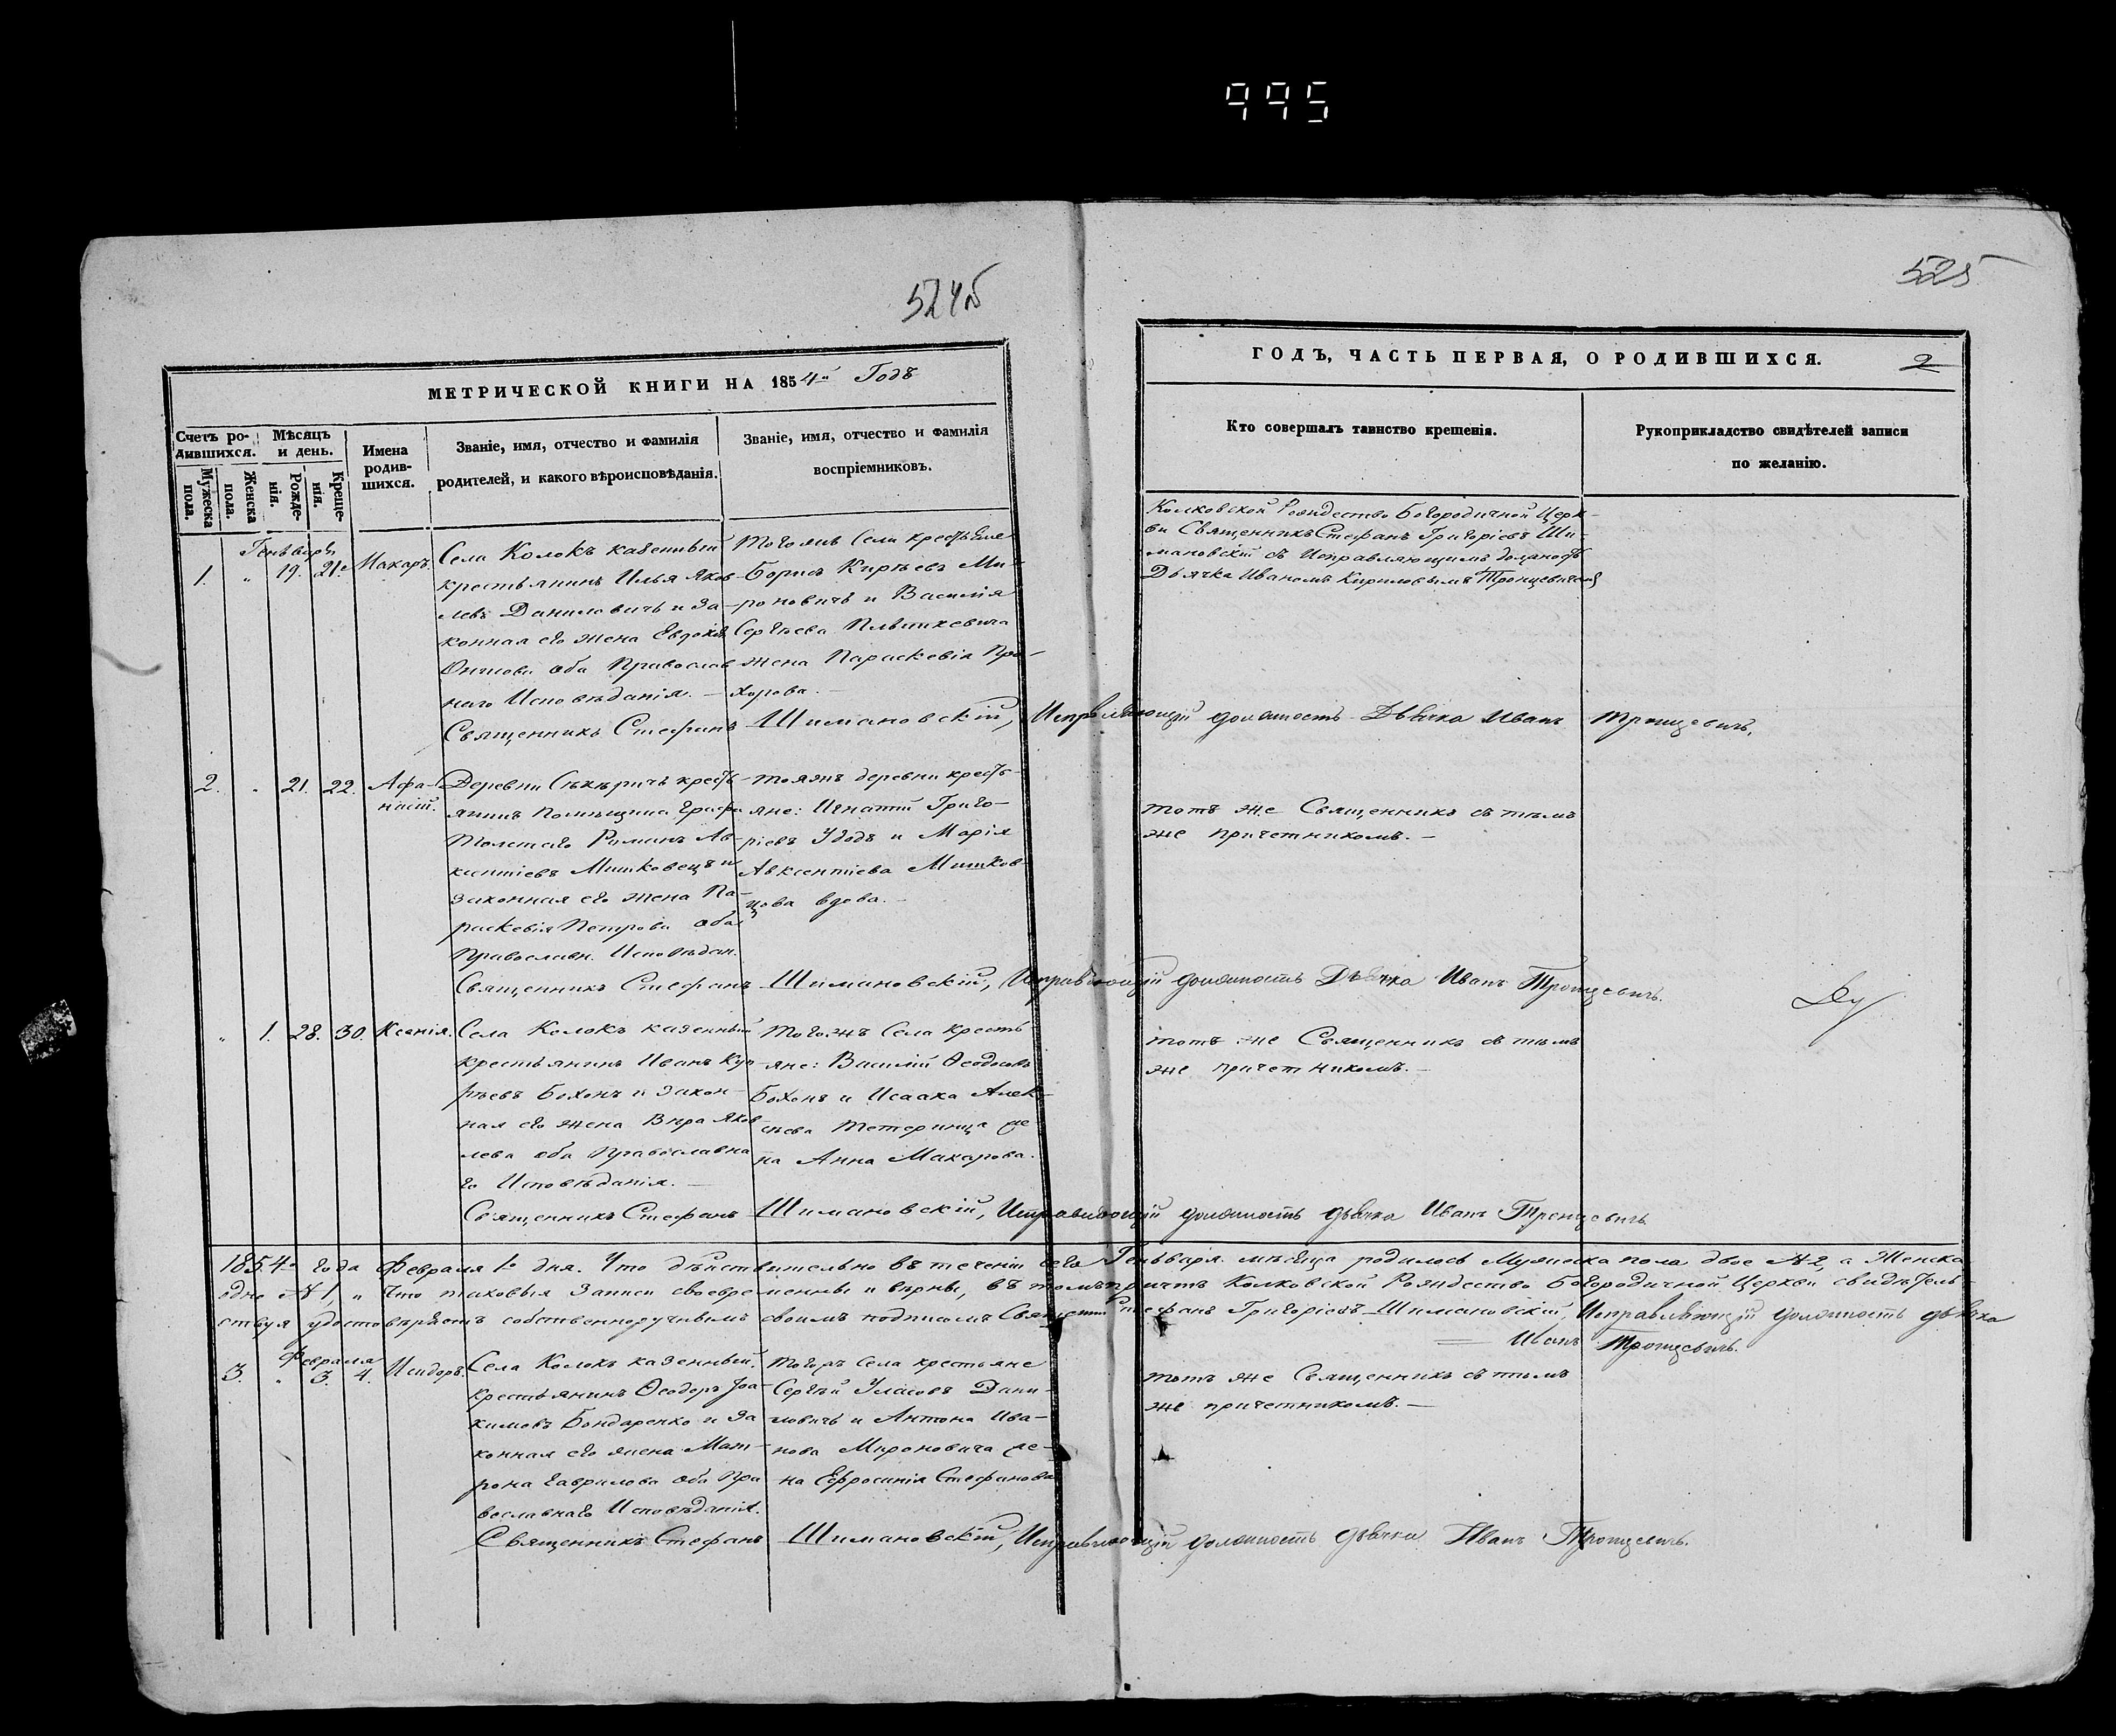 995
524б
525
МЕТРИЧЕСКОЙ КНИГИ НА 1854й Годъ
Счетъ ро-
дившихся.
Мѣсяцъ
и день.
Имена
родив-
шихся.
Званіе, имя, отчество и фамилія
родителей, и какого вѣроисповѣданія.
Званіе, имя, отчество и фамилія
воспріемниковъ.
Мужеска
пола.
Женска
пола.
Рожде-
нія.
Креще-
нія.
ГОДЪ, ЧАСТЬ ПЕРВАЯ, О РОДИВШИХСЯ.
2
Кто совершалъ таинство крещенія.
Рукоприкладство свидѣтелей записи
по желанію.
Генъваря
1. " 19. 21. Макаръ.
Села Колокъ казенный
крестьянинъ Илья Яков-
левъ Даниловичъ и за-
конная его жена Евдокія
обa Православ
наго Исповѣданія. —
Тогожъ Села крестьяне
Борисъ Кирѣевъ Ми-
роновичъ и Василія
Сергѣева
жена Параскевія Про-
хорова. —
Колковской Рождество Богородичной Церк-
ви Священникъ Стефанъ Григоріевъ Ши-
мановскій съ Исправляющимъ должность
Дьячка Иваномъ Кириловымъ Троцевичемъ
Священникъ Стефанъ Шимановскій, Исправляющій должность Дьячка Иванъ Троцевичъ.
2. " 21. 22. Афа-
насій.
Деревни крестъ-
янинъ Помѣщика Графа
Романъ Ав-
ксентіевъ Мишковецъ и
законная его жена Па-
раскевія Петрова оба
Православн. Исповѣдан.
тояжъ деревни кресть-
яне: Игнатій Григо-
ріевъ Удодъ и Марія
Авксентіева Мишков-
цова вдова. —
тотъ же Священникъ съ тѣмъ
же причетникомъ. —
Священникъ Стефанъ Шимановскій, Исправляющій должность Дьячка Иванъ Троцевичъ.
" 1. 28. 30. Ксенія.
Села Колокъ казенный
крестьянинъ Иванъ Кур-
ѣевъ Бохонъ и закон-
ная его жена Вѣра Яков-
лева оба Православна
го Исповѣданія. —
Тогожъ Села кресть
яне: Василій Ѳеодосіовъ
Бохонъ и Исаака Алек-
сѣева Тетерища же-
на Анна Макарова.
тотъ же Священникъ съ тѣмъ
же причетникомъ. —
Священникъ Стефанъ Шимановскій, Исправляющій должность дьячка Иванъ Троцевичъ
1854го года Февраля 1го дня. Что дѣйствительно въ теченіи сего Генъваря мѣсяца родилось Мужеска пола двое № 2, а Женска
одно № 1, " Что таковыя Записи своевременны и вѣрны, въ томъ причтъ Колковской Рождество Богородичной Церкви свидѣтель-
ствуя удостовѣряетъ собственноручнымъ своимъ подписомъ Священникъ Стефанъ Григоріевъ Шимановскій, Исправляющій должность дьячка
Иванъ Троцевичъ.
Февраля
3. " 3. 4. Исидоръ.
Села Колокъ казенный
крестьянинъ Ѳеодоръ Іоа-
кимовъ Бондаренко и за
конная его жена Мат-
рона Гаврилова оба Пра
вославнаго Исповѣданія.
Тогожъ Села крестьяне
Сергѣй Уласовъ Дани-
ловичъ и Антона Ива-
нова Мироновича же-
на Ефросинія Стефанова
тотъ же Священникъ съ тѣмъ
же причетникомъ. —
Священникъ Стефанъ Шимановскій, Исправляющій должность дьячка Иванъ Троцевичъ.